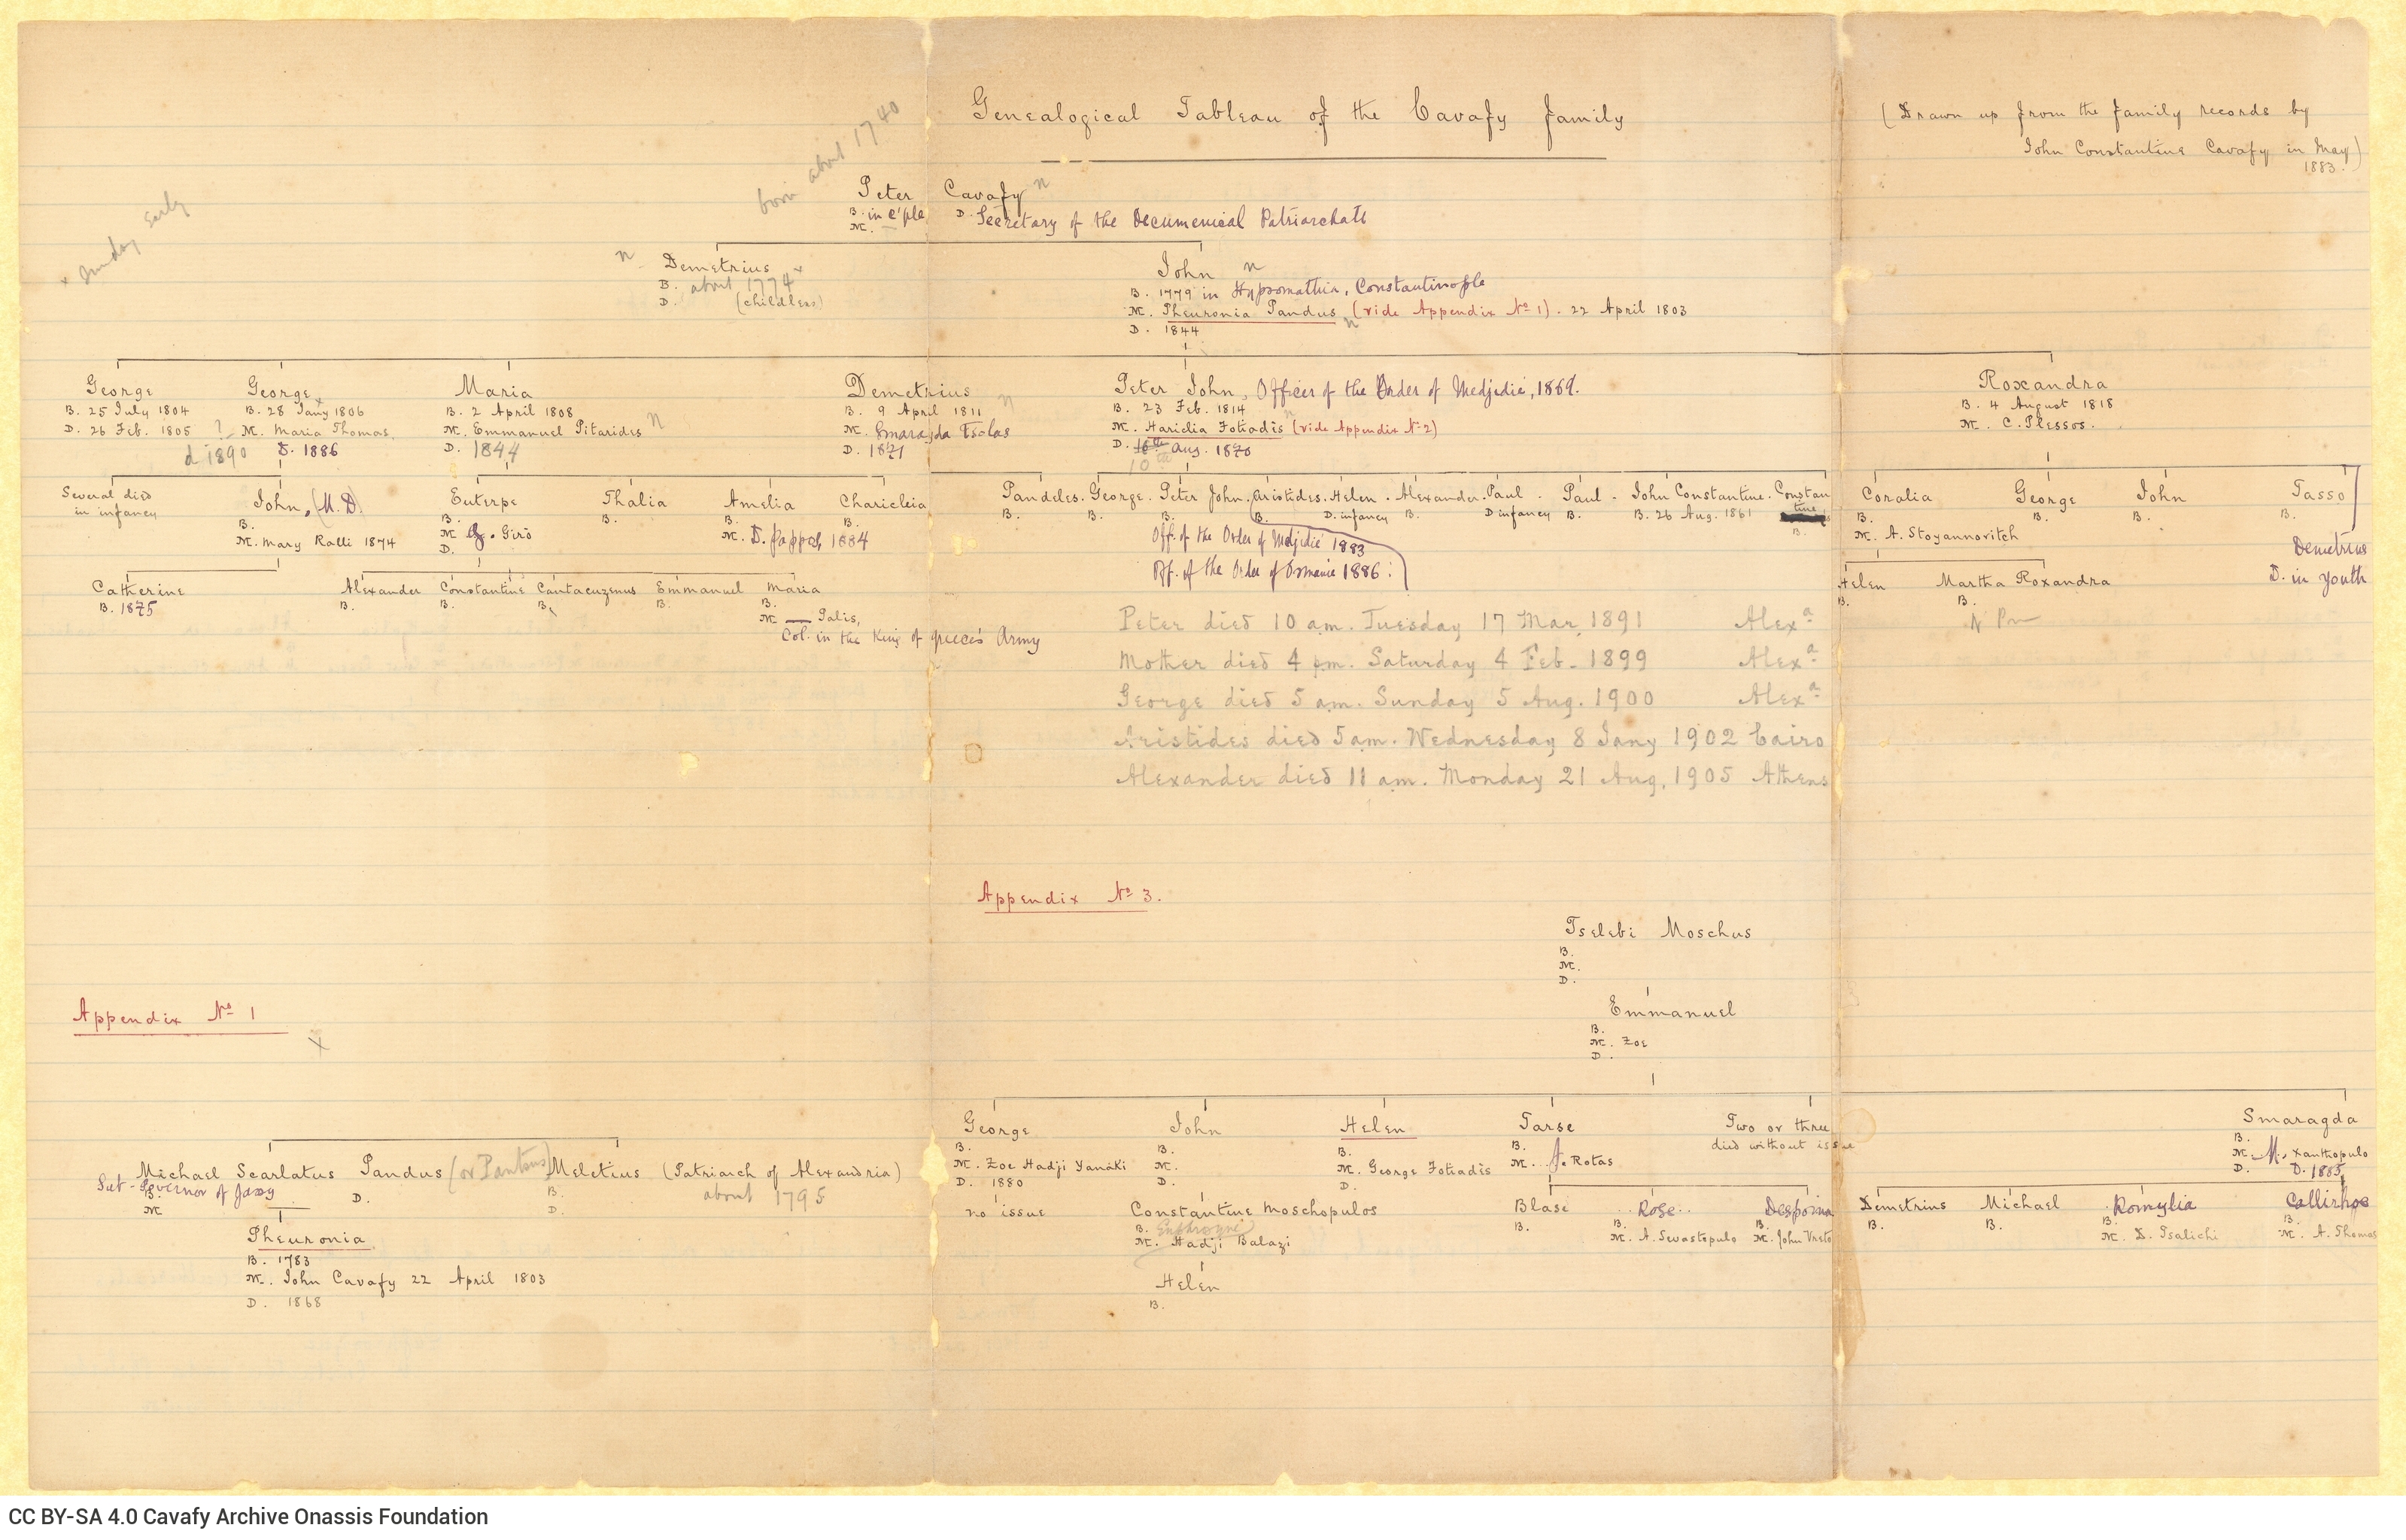 Genealogical Tableau of the Cavafy family
(Drawn up from the family records by
John Constantine Cavafy in May)
1883.
born about 1740
x early
Peter Cavafy n
B. in C'ple D. Secretary of the Oecumenical Patriarchate
M. —
n Demetrius
B. about 1774 x
D. (childless)
John n
B. 1779 in Hypsomathia, Constantinople
M. Pheuronia Pandus (vide Appendix No 1). 22 April 1803
n
D. 1844
George
B. 25 July 1804
D. 26 Feb. 1805
George x
B. 28 Jany 1806
? M. Maria Thomas.
d 1890 D. 1886
Maria
B. 2 April 1808
M. Emmanuel Pitarides n
D. 1844
Demetrius
B. 9 April 1811 n
M. Smaragda Tsolas
D. 1871
Peter John, Officer of the Order of Medjedié, 1869.
B. 23 Feb. 1814
M. Hariclia Fotiadis (vide Appendix No 2)
D. 10th Aug. 1870
10th
Roxandra
B. 4 August 1818
M. C. Plessos.
Several died
in infancy
John, (M.D)
B.
M. Mary Ralli 1874
Euterpe
B.
M. G. Girò
D.
Thalia
B.
Amelia
B.
M. D. Pappa, 1884
Charicleia
B.
Pandeles. George. Peter John. Aristides. Helen. Alexander. Paul. Paul. John Constantine. Constan
tine
B. B. B. B. D. infancy B. D infancy B. B. 26 Aug. 1861
B.
Off. of the Order of Medjidié 1883
Off. of the Order of Osmanie 1886.
Coralia
B.
M. A. Stoyannovitch
George
B.
John
B.
Tasso
B.
Demetrius
D. in youth
Catherine
B. 1875
Alexander Constantine Cantacuzenus Emmanuel Maria
B. B. B. B. B.
M. — Palis,
Col. in the King of Greece's Army
Helen Martha Roxandra
B. B.
Peter died 10 am. Tuesday 17 Mar, 1891 Alexa
Mother died 4 pm. Saturday 4 Feb. 1899 Alexa
George died 5 am. Sunday 5 Aug. 1900 Alexa
Aristides died 5 am. Wednesday 8 Jany 1902 Cairo
Alexander died 11 am. Monday 21 Aug. 1905 Athens
Appendix No 3.
Tselebi Moschus
B.
M.
D.
Emmanuel
B.
M. Zoe
D.
George
B.
M. Zoe Hadji Yanáki
D. 1880
no issue
John
B.
M.
D.
Constantine Moschopulos
B.
M. Hadji Balazi
Helen
B.
Helen
B.
M. George Fotiadis
D.
Tarse
B.
M. J. Rotas
Two or three
died without issue
Smaragda
B.
M. M. Xanthopulo
D. D. 1885
Blase
B.
Rose
B.
M. A. Sevastopulo
Despoina
B.
M. John Vresto
Demetrius
B.
Michael
B.
Romylia
B.
M. D. Tsalichi
Callirhoe
B.
M. A. Thomas
Appendix No 1
x
Michael Scarlatus Pandus (or Pantens)
Sub-Governor of Jassy
B. D.
M
Meletius (Patriarch of Alexandria)
B. about 1795
D.
Pheuronia
B. 1783
M. John Cavafy 22 April 1803
D. 1868
CC BY-SA 4.0 Cavafy Archive Onassis Foundation